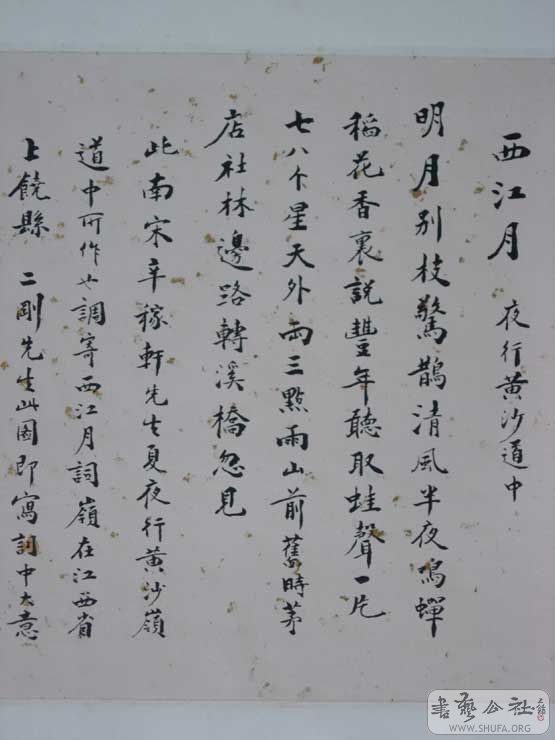 西江月 夜行黄沙道中
明月别枝驚鵲清風半夜鳴蟬
稻花香裏説豐年聽取蛙聲一片
七八个星天外兩三點雨山前舊時茅
店社林邊路轉溪橋忽見
此南宋辛稼軒先生夏夜行黄沙嶺
道中所作也調寄西江月詞嶺在江西省
上饒縣 二剛先生此圖即寫詞中大意
書藝公社
WWW.SHUFA.ORG